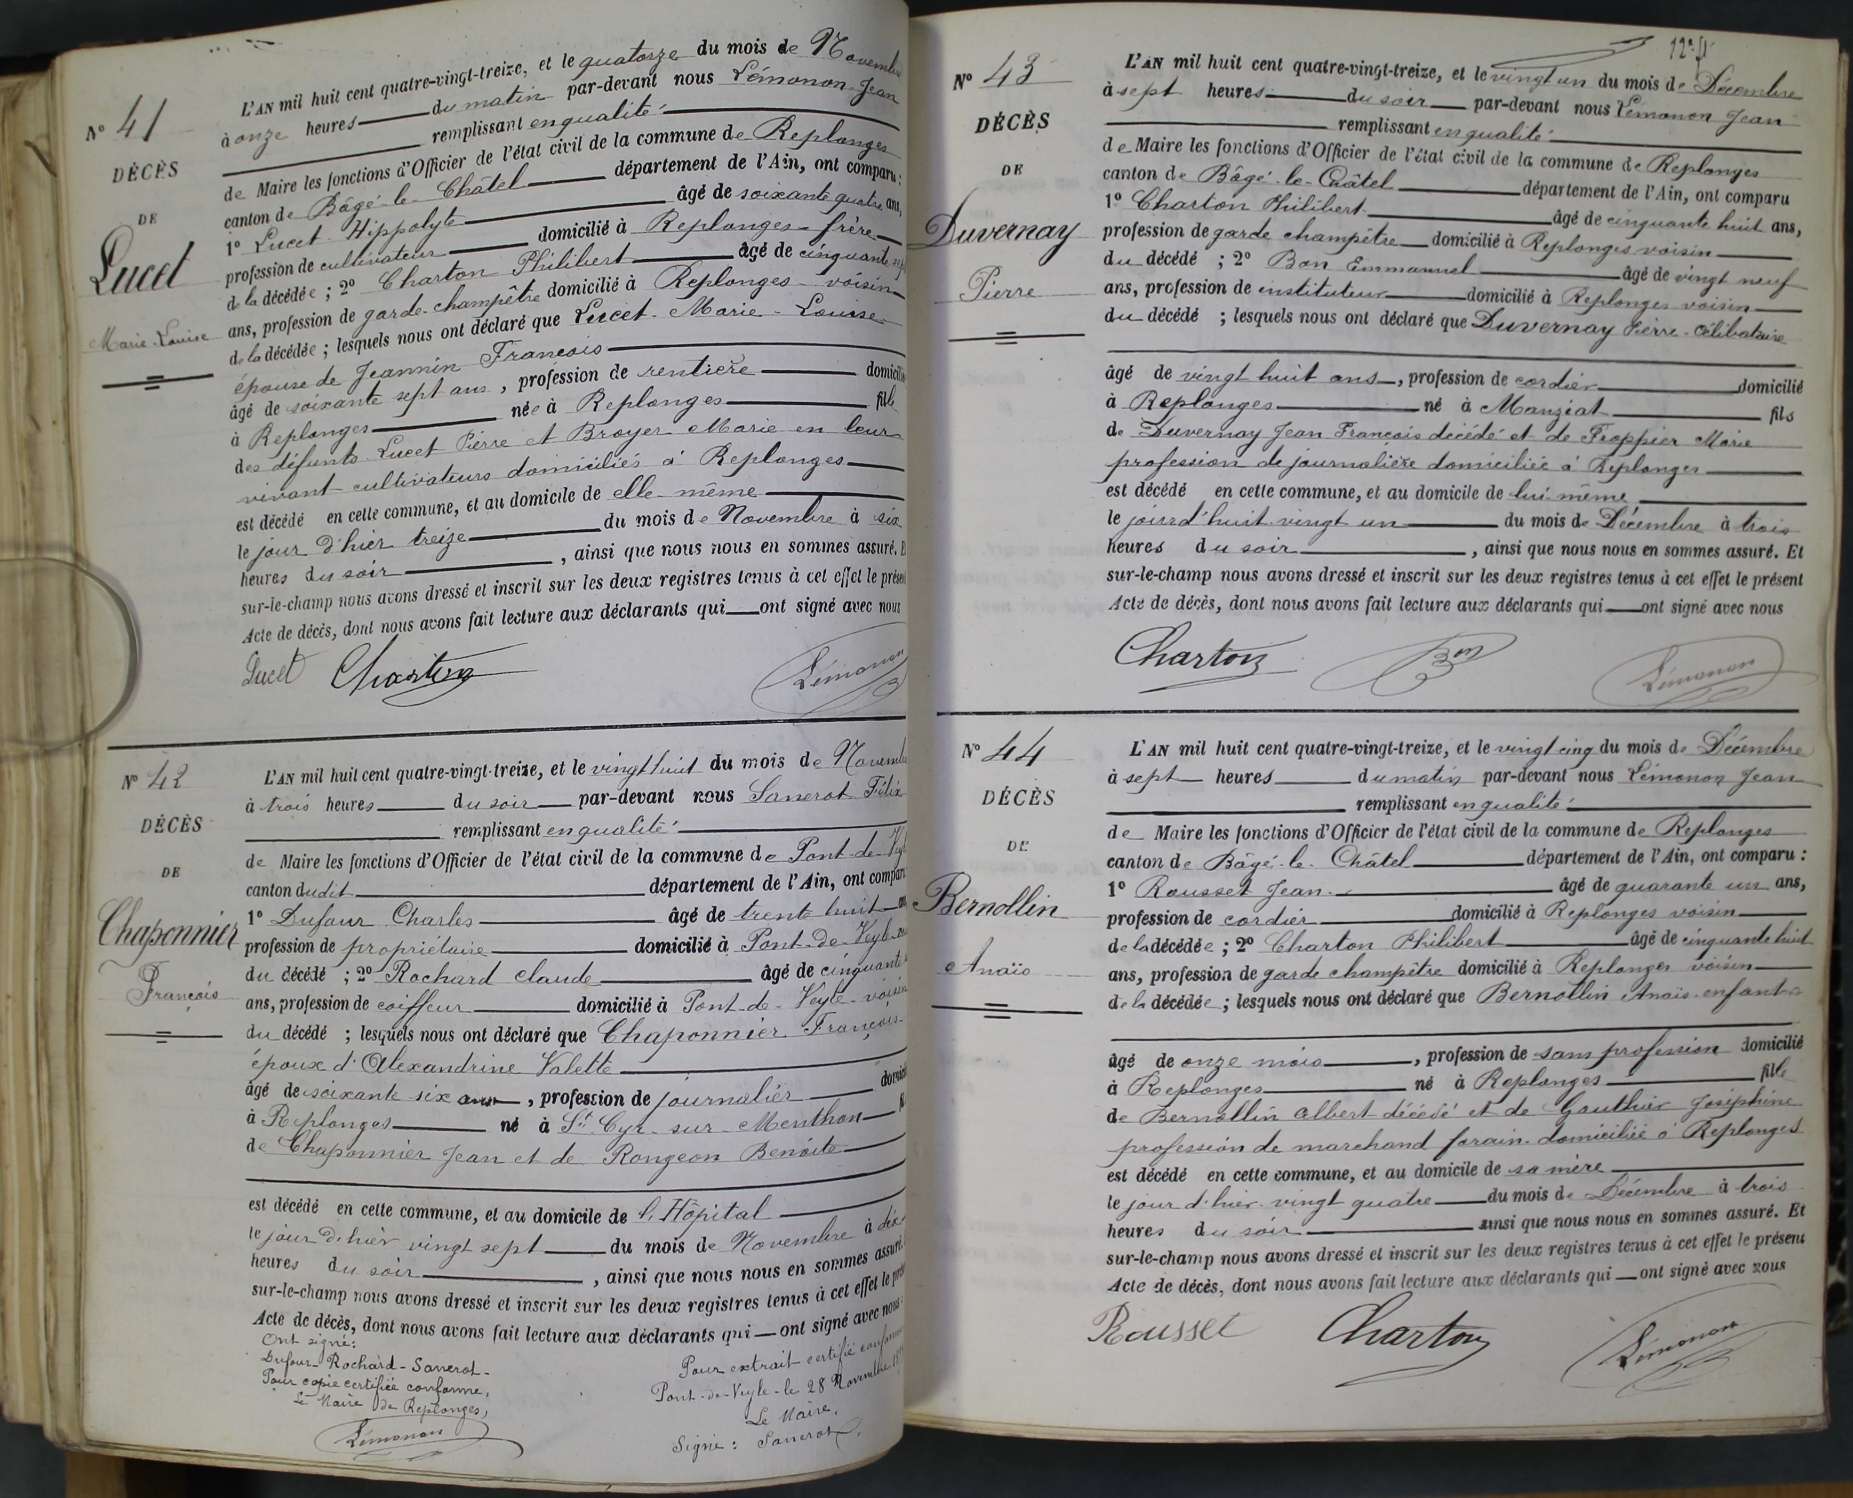 N° 41
DÉCÈS
DE
Lucet
Marie-Louise
L'AN mil huit cent quatre-vingt-treize, et le quatorze du mois de Novembre
à onze heures du matin par-devant nous Lémonon Jean
remplissant en qualité
de Maire les fonctions d'Officier de l'état civil de la commune de Replonges
canton de Bâgé-le-Châtel département de l'Ain, ont comparu :
1° Lucet Hippolyte âgé de soixante quatre ans,
profession de cultivateur domicilié à Replonges frère
de la décédée ; 2° Charton Philibert âgé de cinquante
ans, profession de garde-champêtre domicilié à Replonges voisin
de la décédée ; lesquels nous ont déclaré que Lucet Marie-Louise
épouse de Jeannin François
âgé de soixante sept ans, profession de rentière domicilié
à Replonges née à Replonges fille
des défunts Lucet Pierre et Broyer Marie en leur
vivant cultivateurs domiciliés à Replonges
est décédé en cette commune, et au domicile de elle-même
le jour d'hier treize du mois de Novembre à six
heures du soir, ainsi que nous nous en sommes assuré. Et
sur-le-champ nous avons dressé et inscrit sur les deux registres tenus à cet effet le présent
Acte de décès, dont nous avons fait lecture aux déclarants qui ont signé avec nous
Lucet Charton Lémonon
N° 42
DÉCÈS
DE
Chaponnier
François
L'AN mil huit cent quatre-vingt-treize, et le vingt huit du mois de Novembre
à trois heures du soir par-devant nous Sanerot Félix
remplissant en qualité
de Maire les fonctions d'Officier de l'état civil de la commune de Pont-de-Veyle
canton dudit département de l'Ain, ont comparu
1° Dufour Charles âgé de trente huit ans
profession de propriétaire domicilié à Pont-de-Veyle
du décédé ; 2° Rochard Claude âgé de cinquante
ans, profession de coiffeur domicilié à Pont-de-Veyle voisin
du décédé ; lesquels nous ont déclaré que Chaponnier François
époux d'Alexandrine Valette
âgé de soixante six ans, profession de journalier domicilié
à Replonges né à St Cyr-sur-Menthon fils
de Chaponnier Jean et de Rongeon Benoite
est décédé en cette commune, et au domicile de l'Hôpital
le jour d'hier vingt sept du mois de Novembre à dix
heures du soir, ainsi que nous nous en sommes assuré.
sur-le-champ nous avons dressé et inscrit sur les deux registres tenus à cet effet le présent
Acte de décès, dont nous avons fait lecture aux déclarants qui ont signé avec nous.
Ont signé :
Dufour-Rochard-Sanerot-
Pour copie certifiée conforme,
Le Maire de Replonges,
Lémonon
Pour extrait certifié conforme
Pont-de-Veyle-le 28 Novembre
Le Maire,
Signé : Sanerot
N° 43
DÉCÈS
DE
Duvernay
Pierre
L'AN mil huit cent quatre-vingt-treize, et le vingt un du mois de Décembre
à sept heures du soir par-devant nous Lémonon Jean
remplissant en qualité
de Maire les fonctions d'Officier de l'état civil de la commune de Replonges
canton de Bâgé-le-Châtel département de l'Ain, ont comparu
1° Charton Philibert âgé de cinquante huit ans,
profession de garde champêtre domicilié à Replonges voisin
du décédé ; 2° Bon Emmanuel âgé de vingt neuf
ans, profession de instituteur domicilié à Replonges voisin
du décédé ; lesquels nous ont déclaré que Duvernay Pierre-célibataire
âgé de vingt huit ans, profession de cordier domicilié
à Replonges né à Manziat fils
de Duvernay Jean François décédé et de Froppier Marie
profession de journalière domiciliée à Replonges
est décédé en cette commune, et au domicile de lui-même
le jour d'huit vingt un du mois de Décembre à trois
heures du soir, ainsi que nous nous en sommes assuré. Et
sur-le-champ nous avons dressé et inscrit sur les deux registres tenus à cet effet le présent
Acte de décès, dont nous avons fait lecture aux déclarants qui ont signé avec nous
Charton Bon Lémonon
N° 44
DÉCÈS
DE
Bernollin
Anaïs
L'AN mil huit cent quatre-vingt-treize, et le vingt cinq du mois de Décembre
à sept heures du matin par-devant nous Lémonon Jean
remplissant en qualité
de Maire les fonctions d'Officier de l'état civil de la commune de Replonges
canton de Bâgé-le-Châtel département de l'Ain, ont comparu :
1° Rousset Jean âgé de quarante un ans,
profession de cordier domicilié à Replonges voisin
de la décédée ; 2° Charton Philibert âgé de cinquante huit
ans, profession de garde champêtre domicilié à Replonges voisin
de la décédée ; lesquels nous ont déclaré que Bernollin Anaïs-enfant
âgé de onze mois, profession de sans profession domicilié
à Replonges né à Replonges fille
de Bernollin Albert décédé et de Gauthier Joséphine
profession de marchand forain domiciliée à Replonges
est décédé en cette commune, et au domicile de sa mère
le jour d'hier vingt quatre du mois de Décembre à trois
heures du soir ainsi que nous nous en sommes assuré. Et
sur-le-champ nous avons dressé et inscrit sur les deux registres tenus à cet effet le présent
Acte de décès, dont nous avons fait lecture aux déclarants qui ont signé avec nous
Rousset Charton Lémonon